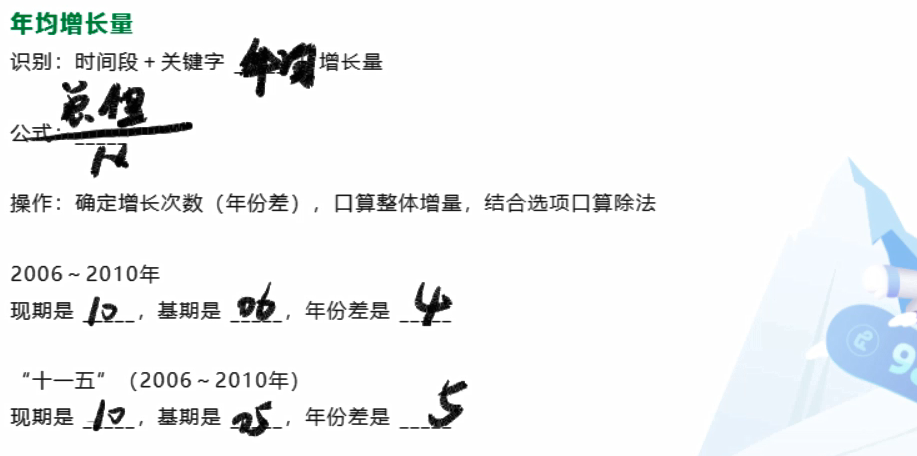 年均增长量
识别：时间段+关键字 年均 增长量
总增
公式：_____
N
操作：确定增长次数（年份差），口算整体增量，结合选项口算除法
2006～2010年
现期是 10，基期是 06，年份差是 4
“十一五”（2006～2010年）
现期是 10，基期是 05，年份差是 5